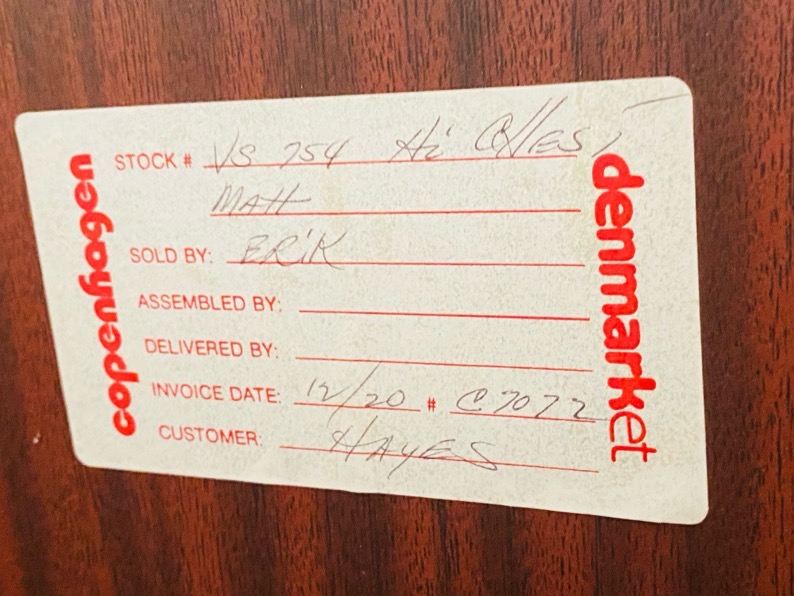 copenhagen
STOCK # VS 754 Hi
MAtt
SOLD BY: ERiK
ASSEMBLED BY:
DELIVERED BY:
INVOICE DATE: 12/20 # C7072
CUSTOMER: HAYES
denmarket